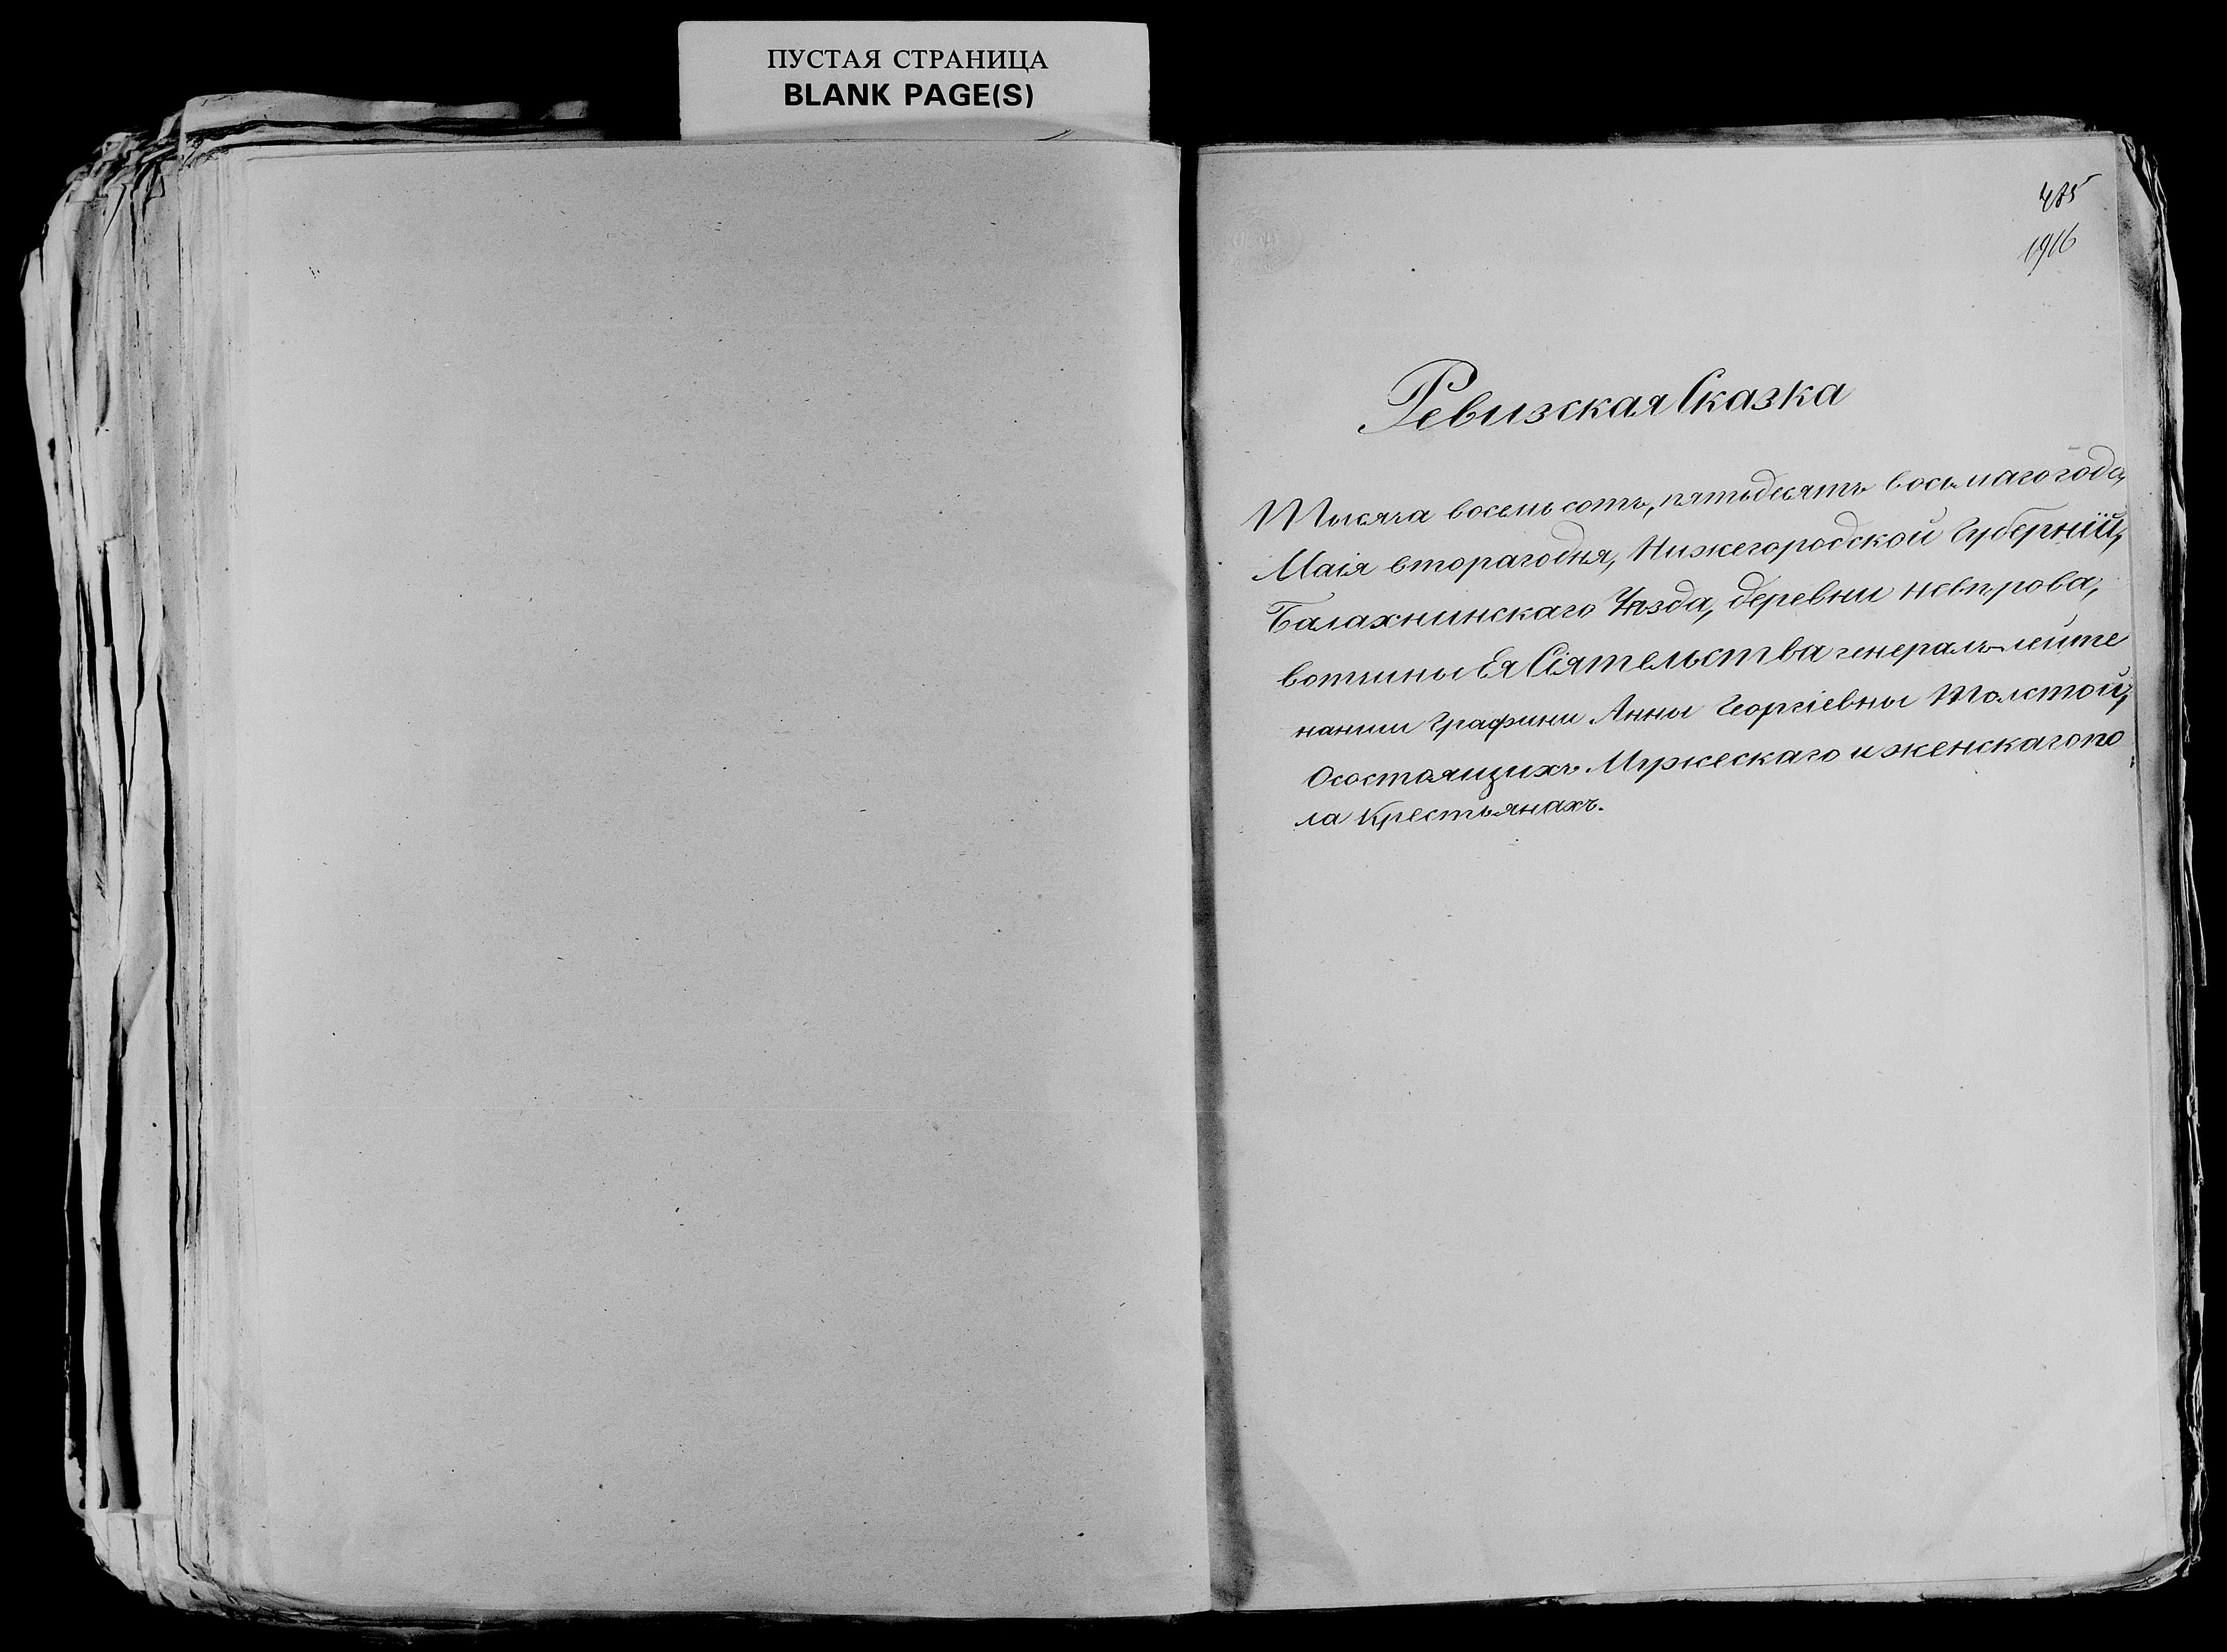 ПУСТАЯ СТРАНИЦА
BLANK PAGE(S)
485
1916
Ревизская Сказка
Тысяча восемь сотъ, пятьдесятъ восьмаго года,
Маія втораго дня, Нижегородской Губерніи,
Балахнинскаго Уѣзда, деревни Невѣрова,
вотчины Ея Сіятельства генералъ-лейте
нанши Графини Анны Георгіевны Толстой,
О состоящихъ Мужескаго и женскаго по
ла Крестьянахъ.